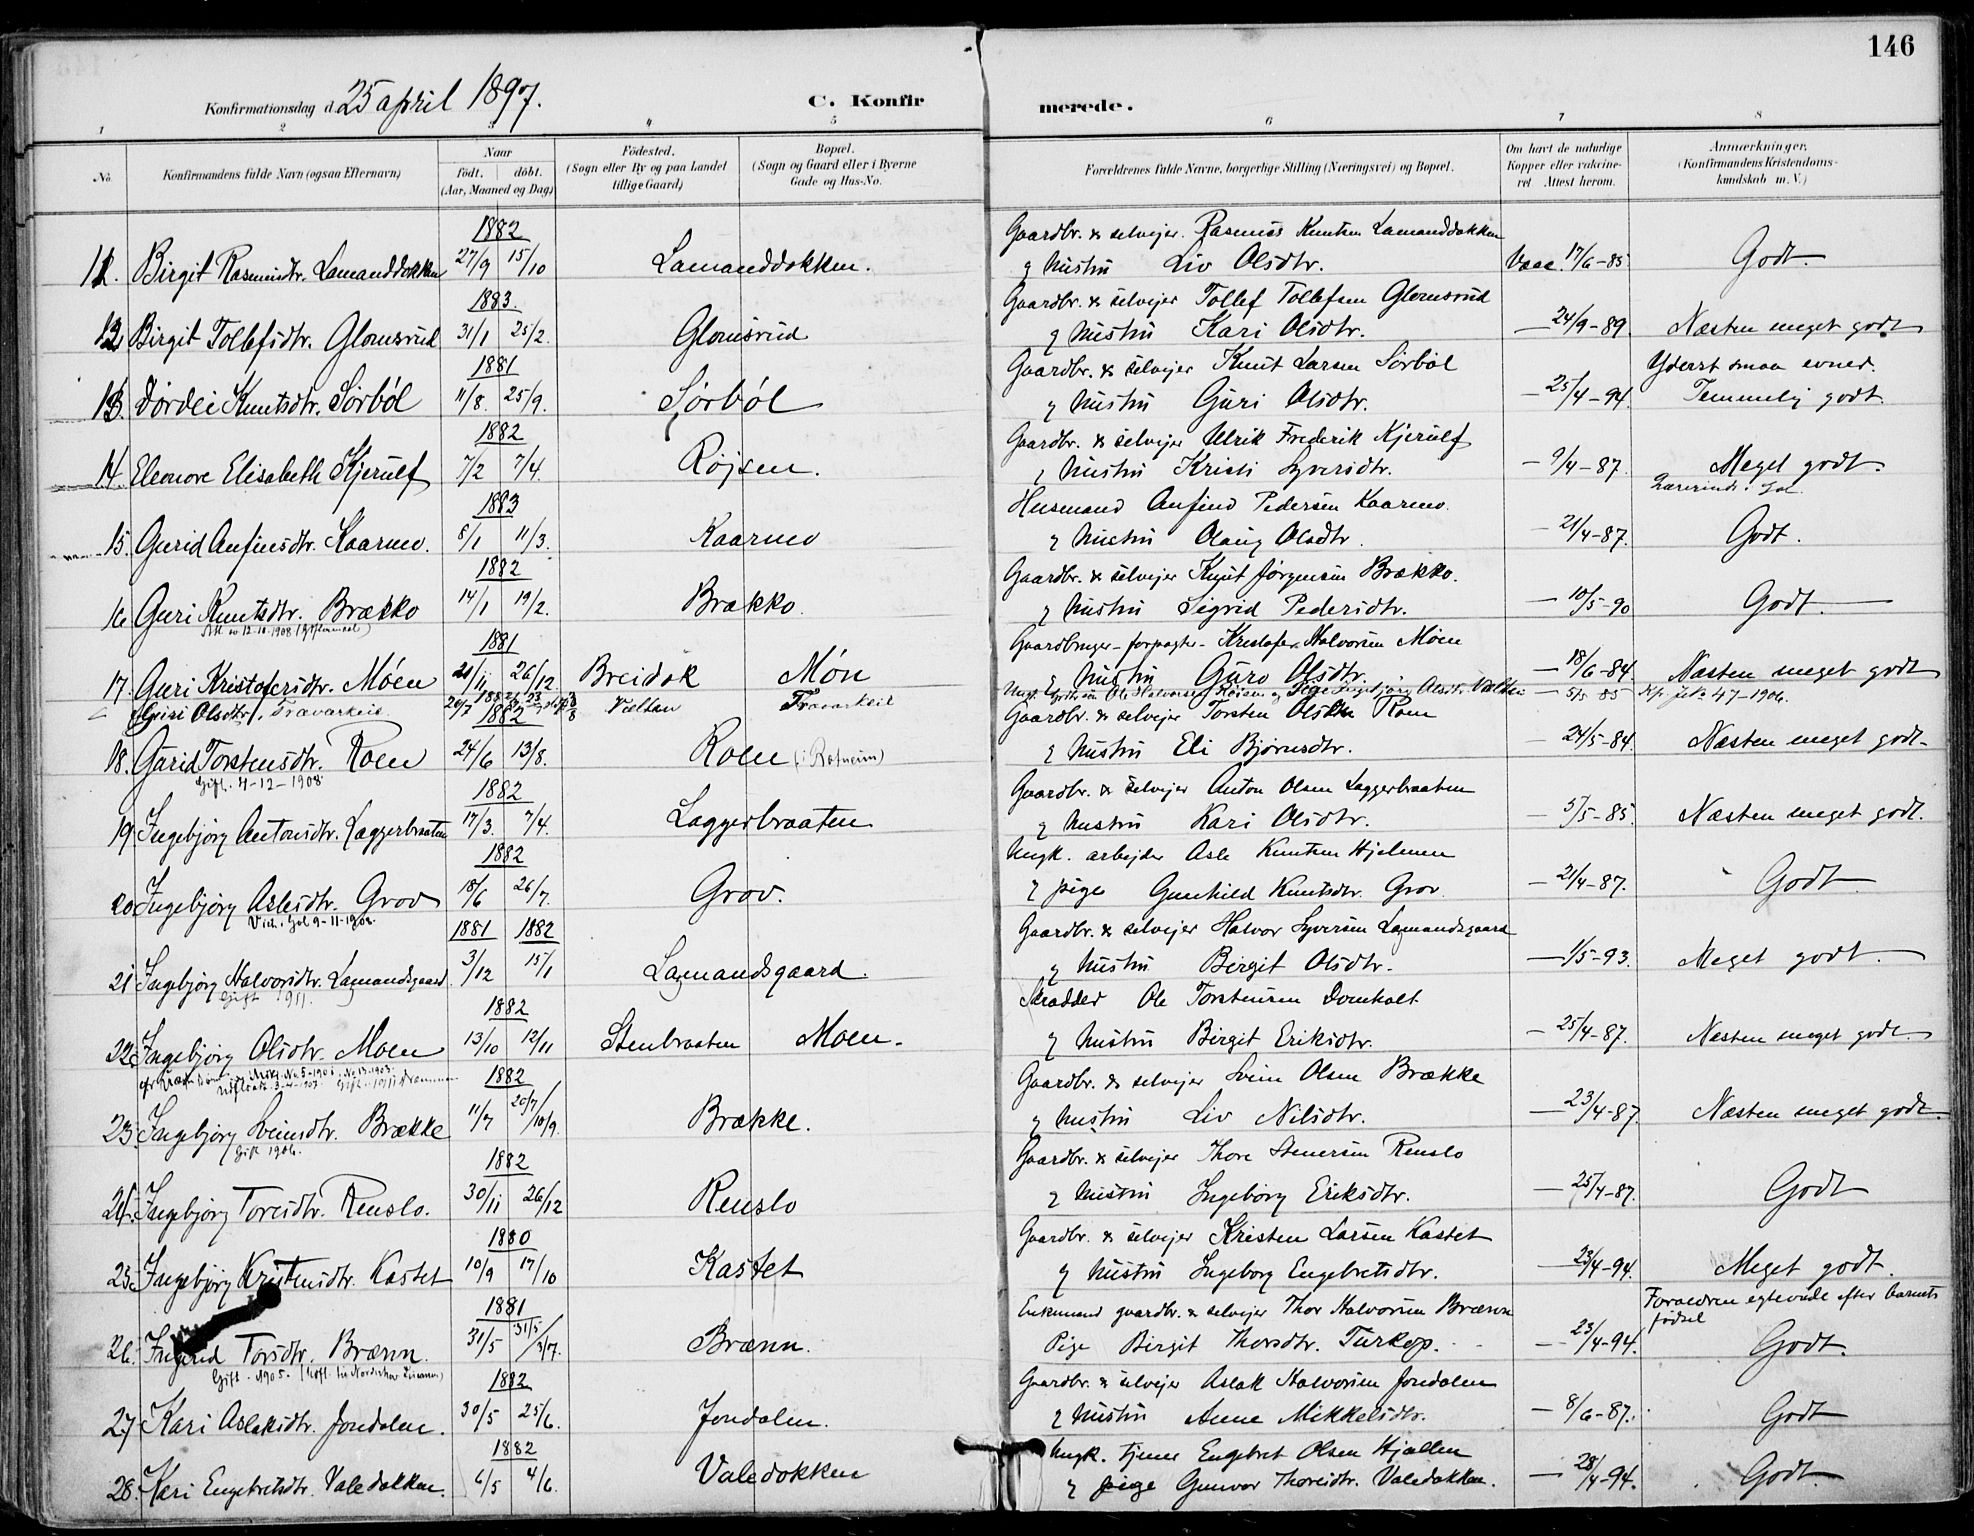 146
Konfirmationsdag d. 25 april 1897. C. Konfirmerede.
1 2 3 4 5 6 7 8
No. Konfirmandens fulde Navn (ogsaa Efternavn) Naar født. døbt. (Aar, Maaned og Dag) Fødested. (Sogn eller By og paa Landet tillige Gaard) Bopæl. (Sogn og Gaard eller i Byerne Gade og Hus-No. Forældrenes fulde Navne, borgerlige Stilling (Næringsvei) og Bopæl. Om havt de naturlige Kopper eller vakcineret Attest herom. Anmærkninger, (Konfirmandens Kristendomskundskab m. V.)
1882 Gaardbr. & selvejer. Rasmus Knutsen Lamanddokken
11. Birgit Rasmusdtr. Lamanddokken 27/9 15/10 Lamanddokken. & hustru Liv Olsdtr. Vacc. 17/6-85 Godt.
1883. Gaardbr. & selvejer Tollef Tollefsen Glomsrud
12. Birgit Tollefsdtr. Glomsrud 31/1 25/2. Glomsrud & hustru Kari Olsdtr. — 24/9-89. Næsten meget godt
1881 Gaardbr. & selvejer Knut Larsen Sørbøl Yderst smaa evner.
13. Dordei Knutsdtr. Sørbøl 11/8. 25/9. Sørbøl & hustru Guri Olsdtr. — 25/4-94. Temmelig godt.
1882 Gaardbr. & selvejer Ulrik Frederik Kjerulf
14. Eleonore Elisabeth Kjerulf 7/2 7/4. Röjsen. & hustru Kristi Syversdtr. — 9/4-87. Meget godt.
1883 Husmand Anfind Pedersen Kaarmo. Lærerinde i Gol
15. Gurid Anfinsdtr. Kaarmo. 8/1 11/3. Kaarmo & hustru Olaug Olsdtr. — 21/4-87. Godt.
1882 Gaardbr. & selvejer Knut Jørgensen Brækko.
16 Guri Knutsdtr. Brækko 14/1 19/2. Brækko. & hustru Sigrid Pedersdtr. — 10/5-90 Godt.
Att. 12-10-1908
1881 Gaardbruger-forpagter- Kristofer Halvorsen Möen
17. Guri Kristofersdtr. Möen 21/11 26/12 Breidok Mön & hustru Guro Olsdtr. — 18/6-84. Næsten meget godt
Guri Olsdtr. Travarkeie 1882 Vielten Travarkeie Ole Halvorsen Ingebjørg Olsdtr. — 5/5 85 47-1906.
1882 Gaardbr. & selvejer Torsten Olsen Roen
18. Gurid Torstensdtr. Roen 24/6 13/8. Roen & hustru Eli Bjørnsdtr. 24/5-84. Næsten meget godt.
Gift. 4-12-1908
1882 Gaardbr. & selvejer Anton Olsen Laggerbraaten
19. Ingebjörg Antonsdtr. Laggerbraaten 17/3. 7/4. Laggerbraaten & hustru Kari Olsdtr. — 5/5-85. Næsten meget godt.
1882 Ungk. arbejder Asle Knutsen Hjelmen
20 Ingebjörg Aslesdtr. Grov 18/6 26/7. Grov. & pige Gunhild Knutsdtr. Grov. — 21/4-87. Godt
Viet i Gol 9-11-1908.
1881 1882 Gaardbr. & selvejer Halvor Syversen Lagmandsgaard
21 Ingebjörg Halvorsdtr. Lagmandsgaard 3/12 15/1 Lagmandsgaard. & hustru Birgit Olsdtr. — 1/5-93. Meget godt.
Gift 1911.
1882 Skrædder Ole Torstensen Domholt
22. Ingebjörg Olsdtr. Moen 13/10 12/11 Stenbraaten Moen. & hustru Birgit Eriksdtr. — 25/4-87. Næsten meget godt.
1882 Gaardbr. & selvejer Svein Olsen Brække
23. Ingebjörg Sveinsdtr. Brække 11/7 20/7/10/9. Brække. & hustru Liv Nilsdtr. — 23/4-87. Næsten meget godt
Gift 1906.
1882 Gaardbr. & selvejer Thore Stenersen Renslo
24. Ingebjörg Toresdtr. Renslo. 30/11 26/12 Renslo & hustru Ingeborg Eriksdtr. — 25/4-87. Godt
1880 Gaardbr. & selvejer Kristen Larsen Kastet
25. Ingebjörg Kristensdtr. Kastet 10/9 17/10 Kastet & hustru Ingeborg Engebretsdtr. — 23/4-94. Meget godt.
1881 Enkemand gaardbr. & selvejer Thor Halvorsen Brænn Forældrene egteviede efter barnets fødsel
26. Ingerid Torsdtr. Brænn. 31/5 31/5/3/7. Brænn. Pige Birgit Thorsdtr. Turkop. — 23/4-94. Godt.
Gift. 1905.
1882 Gaardbr. & selvejer Aslak Halvorsen Jondalen
27. Kari Aslaksdtr. Jondalen. 30/5 25/6. Jondalen. & hustru Anne Mikkelsdtr. — 8/6-87. Godt
1882 Ungk. tjener Engebret Olsen Hjallen
28. Kari Engebretsdtr. Valedokken. 6/5 4/6. Valedokken & pige Gunvor Thoresdtr. Valedokken. — 28/4-94. Godt.